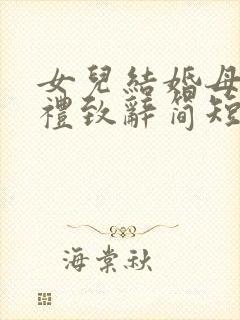 女兒結婚母
禮致辭簡短
海棠秋